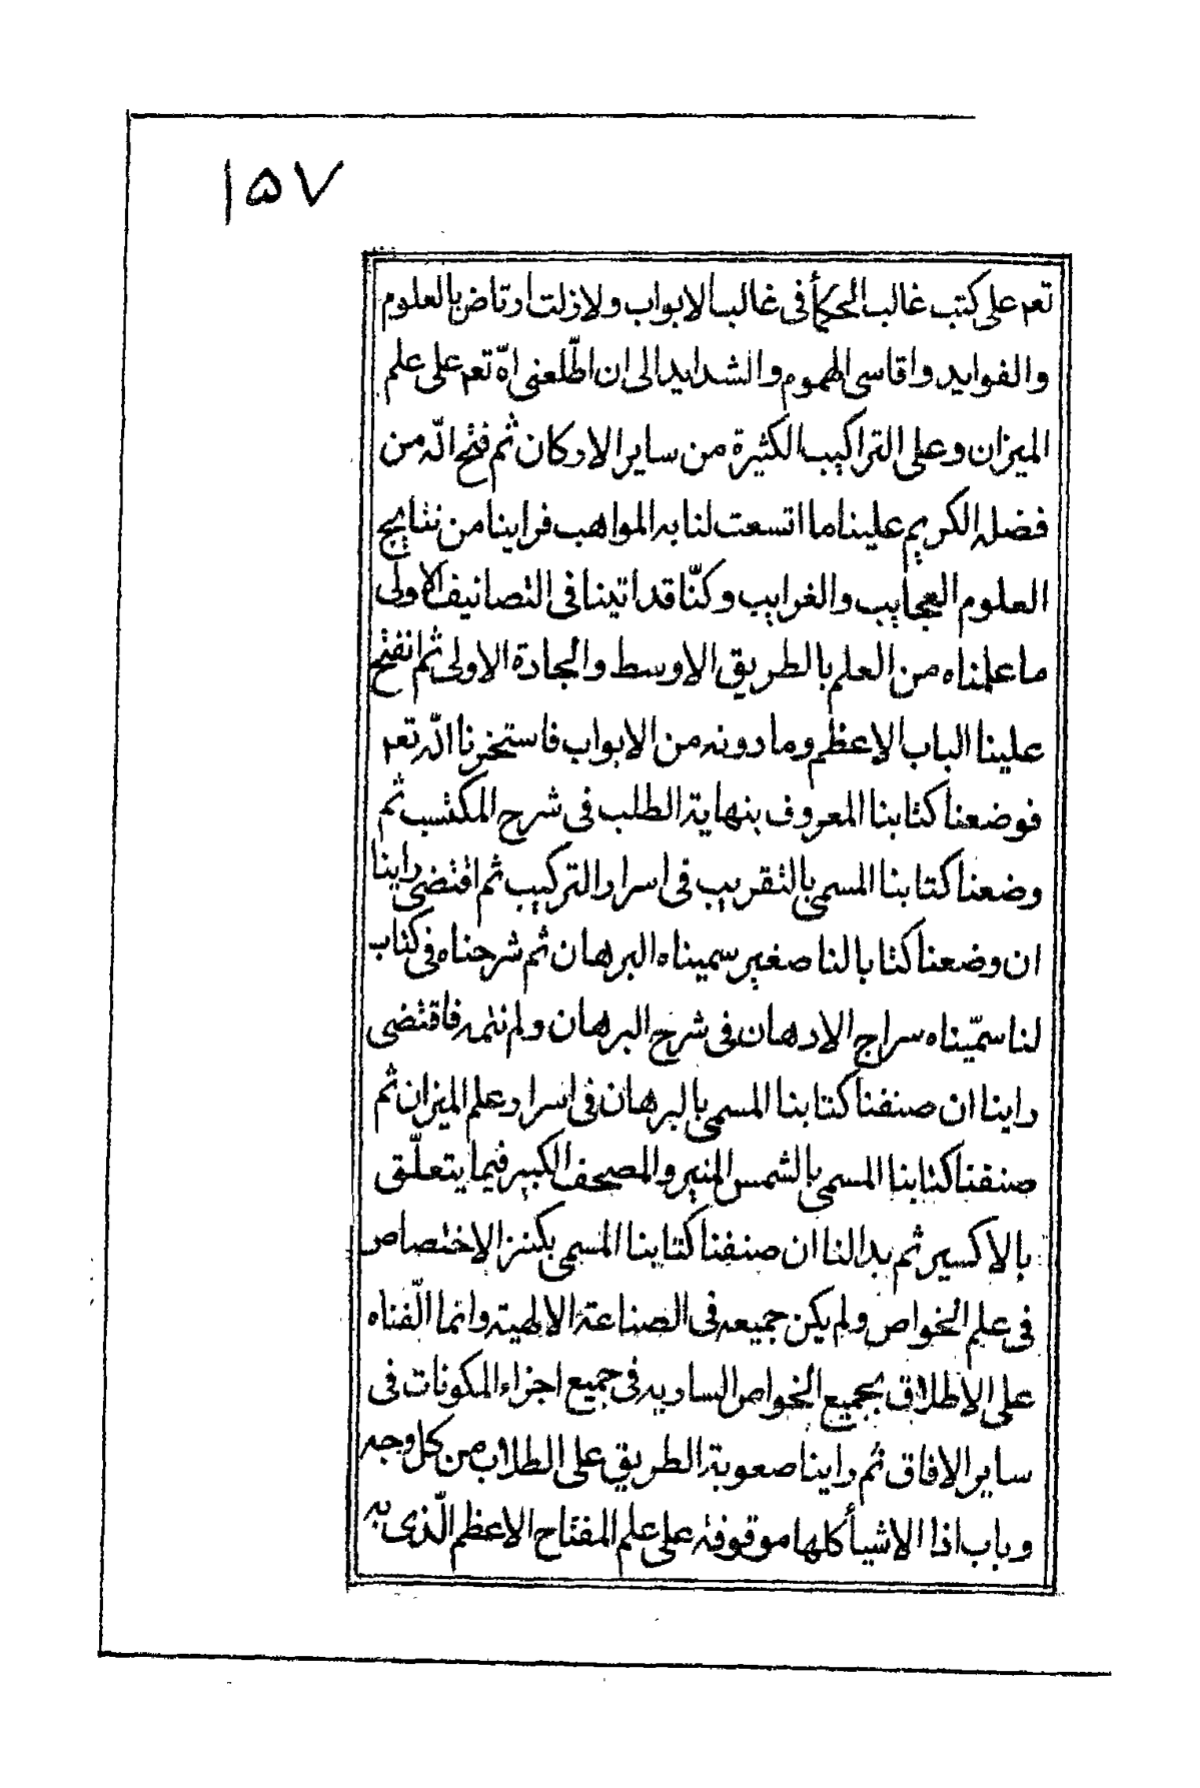 ١۵٧
تعم على كتب غالب الحكمأ فى غالب الابواب ولا زلت ارتاض بالعلوم
والفوايد واقاسى الهموم والشدايد الى ان اطّلعنى الله تعم على علم
الميزان وعلى التراكيب الكثيرة من ساير الاركان ثم فتح الله من
فضله الكريم علينا ما اتسعت لنا به المواهب فراينا من نتايج
العلوم العجايب والغرايب وكنّا قد اتينا فى التصانيف الاولى
ما علمناه من العلم بالطريق الاوسط والجادة الاولى ثم انفتح
علينا الباب الاعظم وما دونه من الابواب فاستخرنا الله تعم
فوضعنا كتابنا المعروف بنهاية الطلب فى شرح المكتسب ثم
وضعنا كتابنا المسمى بالتقريب فى اسرار التركيب ثم اقتضى راينا
ان وضعنا كتابا لنا صغير سميناه البرهان ثم شرحناه فى كتاب
لنا سمّيناه سراج الادهان فى شرح البرهان ولم نتمه فاقتضى
راينا ان صنفنا كتابنا المسمى بالبرهان فى اسرار علم الميزان ثم
صنفنا كتابنا المسمى بالشمس المنير والمصحف الكبير فيما يتعلّق
بالاكسير ثم بدا لنا ان صنفنا كتابنا المسمى بكنز الاختصاص
فى علم الخواص ولم يكن جميعه فى الصناعة الالهية وانما الّفناه
على الاطلاق بجميع الخواص الساريه فى جميع اجزاء المكونات فى
ساير الافاق ثم راينا صعوبة الطريق على الطلاب من كل وجه
وباب اذا الاشيأ كلها موقوفة على علم المفتاح الاعظم الّذى به